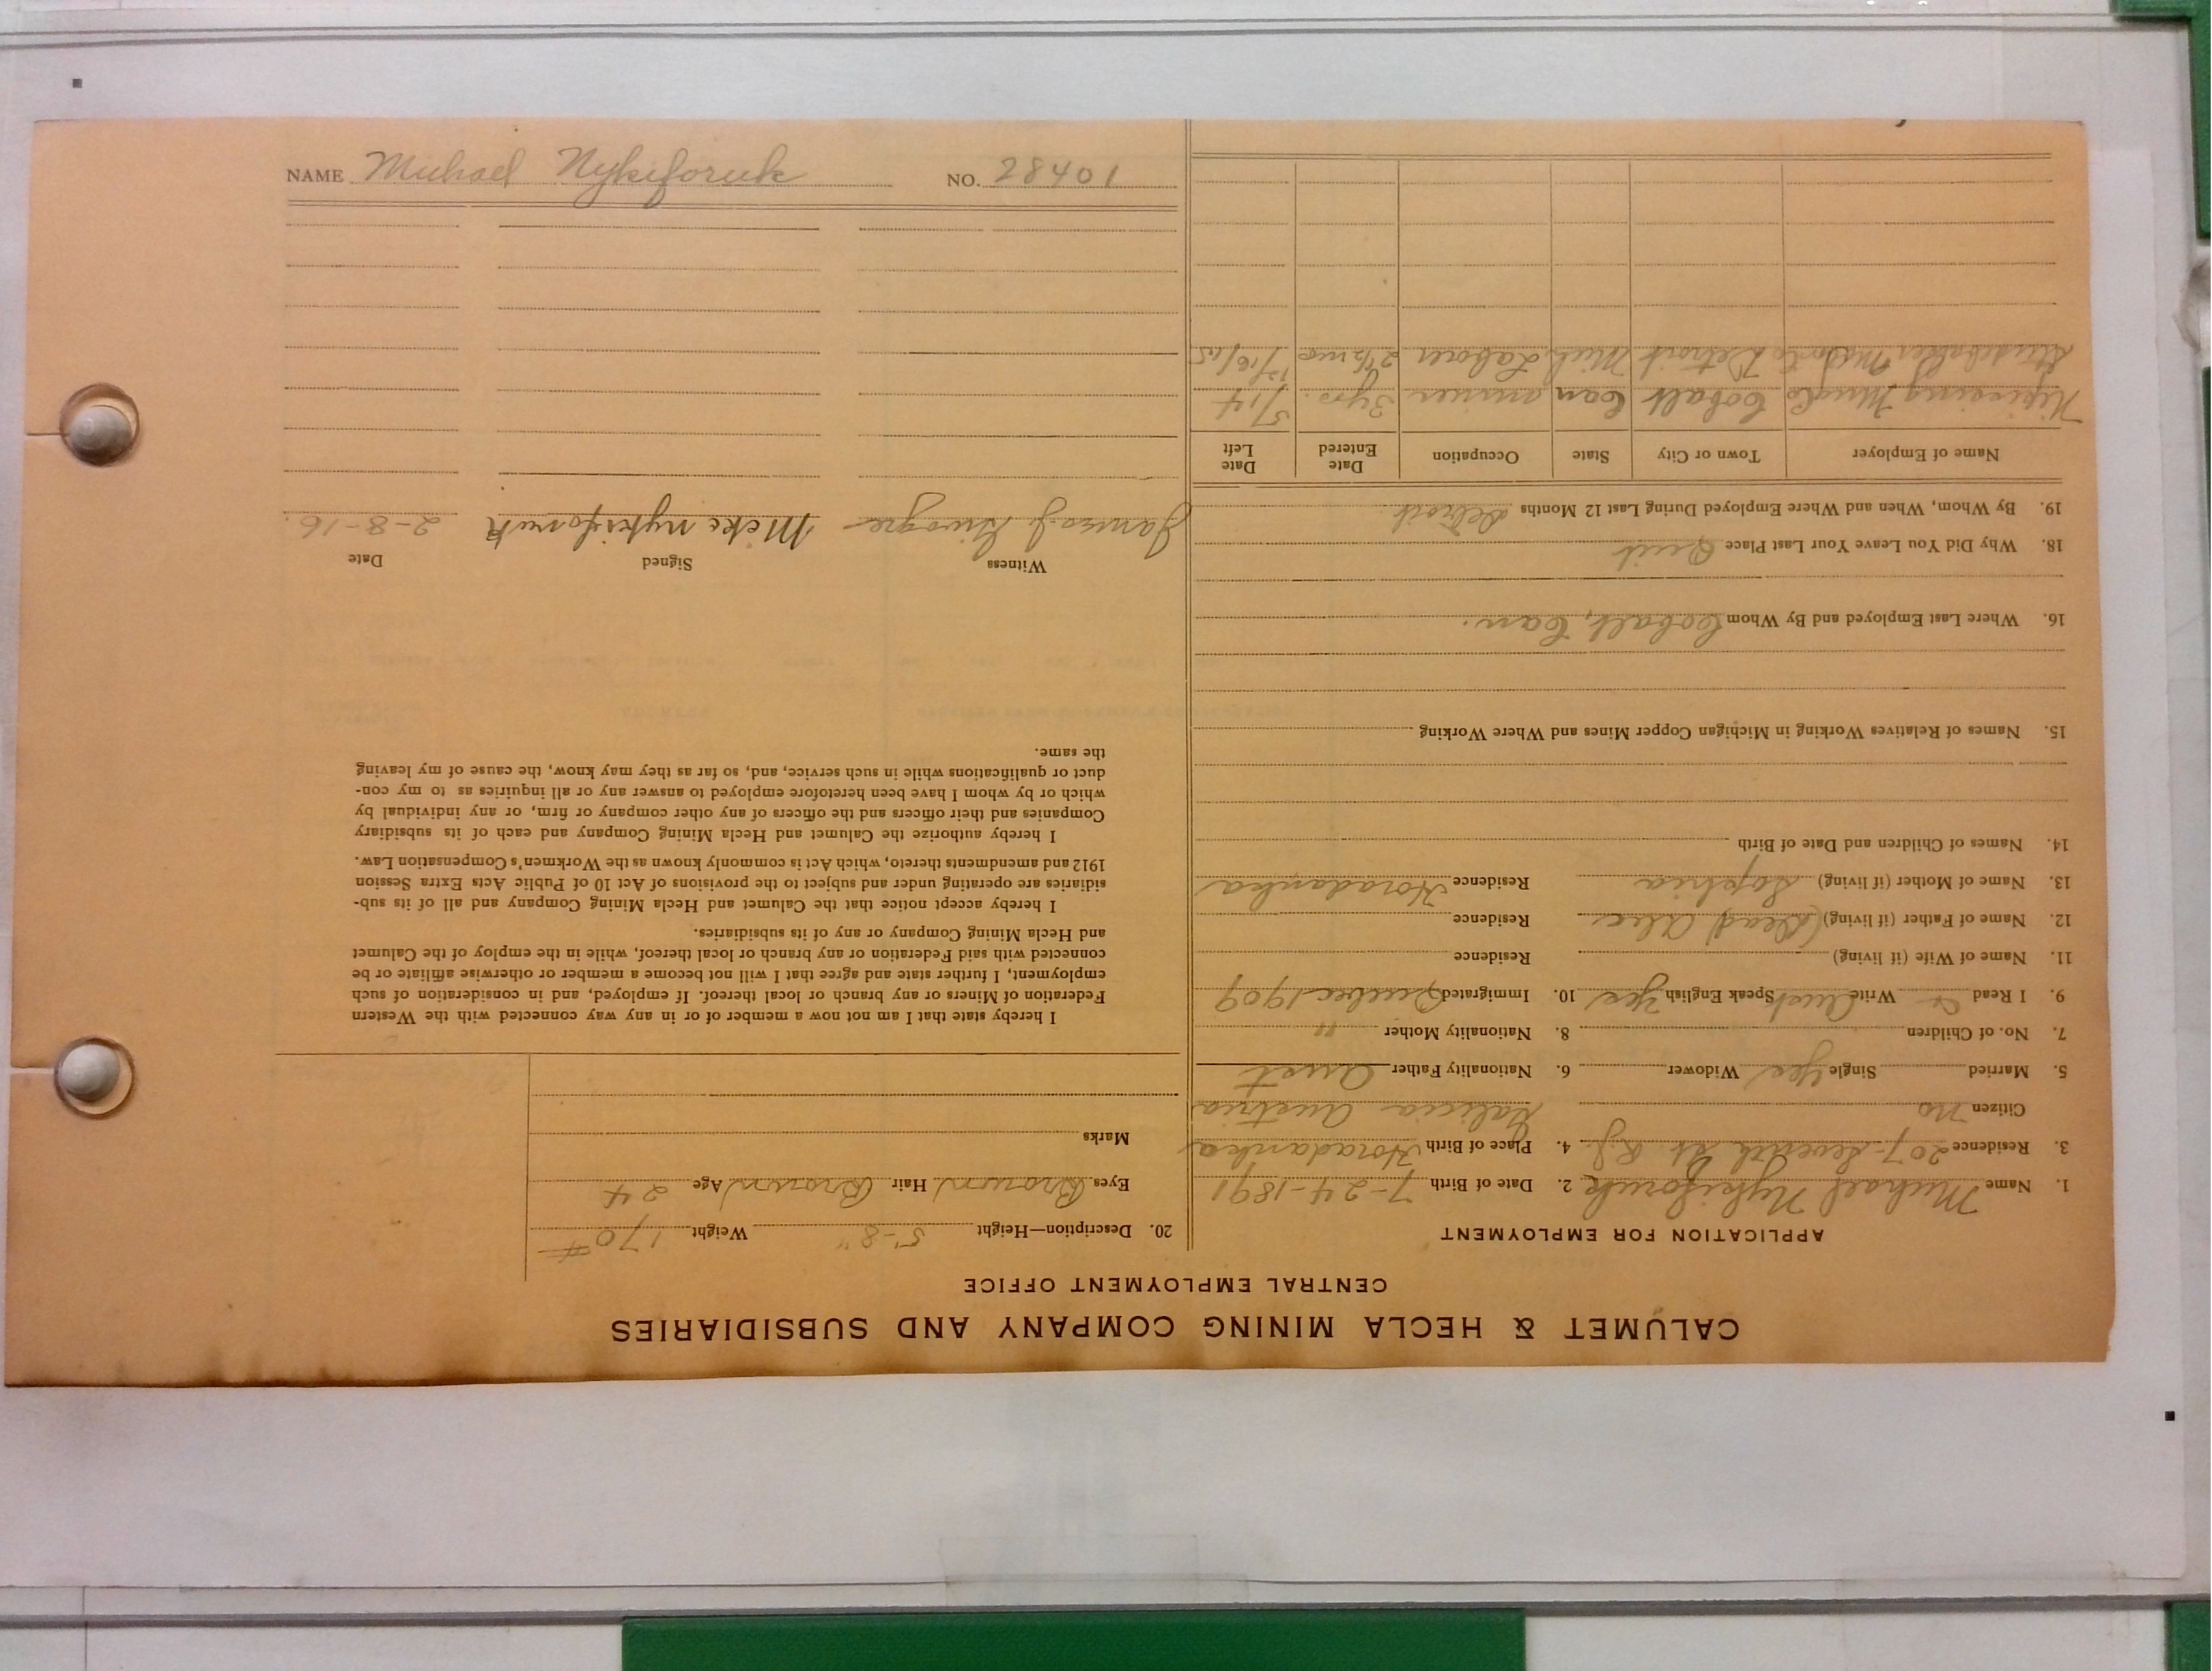 NAME Michael Nykiforuk NO. 28401
CALUMET & HECLA MINING COMPANY AND SUBSIDIARIES
CENTRAL EMPLOYMENT OFFICE
APPLICATION FOR EMPLOYMENT
1. Name Michael Nykiforuk 2. Date of Birth 7-24-1891
3. Residence 207-Seventh St R.J. 4. Place of Birth Horadanka
Citizen no Galicia Austria
5. Married Single Yes Widower 6. Nationality Father Aust
7. No. of Children 8. Nationality Mother "
9. I Read Write Aust Speak English Yes 10. Immigrated December 1909
11. Name of Wife (if living) Residence
12. Name of Father (if living) (Dead) Alex Residence
13. Name of Mother (if living) Sophia Residence Horadanka
14. Names of Children and Date of Birth
15. Names of Relatives Working in Michigan Copper Mines and Where Working
16. Where Last Employed and By Whom Cobalt, Can.
18. Why Did You Leave Your Last Place Quit
19. By Whom, When and Where Employed During Last 12 Months Detroit
Name of Employer Town or City State Occupation Date Entered Date Left
Nipissing Mng Co Cobalt Can miner 3 yrs. 5/14
Studebaker Motor Co Detroit Mich Laborer 2 1/2 mos 12/16/15
20. Description—Height 5'-8" Weight 170#
Eyes Brown Hair Brown Age 24
Marks
I hereby state that I am not now a member of or in any way connected with the Western
Federation of Miners or any branch or local thereof. If employed, and in consideration of such
employment, I further state and agree that I will not become a member or otherwise affiliate or be
connected with said Federation or any branch or local thereof, while in the employ of the Calumet
and Hecla Mining Company or any of its subsidiaries.
I hereby accept notice that the Calumet and Hecla Mining Company and all of its sub-
sidiaries are operating under and subject to the provisions of Act 10 of Public Acts Extra Session
1912 and amendments thereto, which Act is commonly known as the Workmen's Compensation Law.
I hereby authorize the Calumet and Hecla Mining Company and each of its subsidiary
Companies and their officers and the officers of any other company or firm, or any individual by
which or by whom I have been heretofore employed to answer any or all inquiries as to my con-
duct or qualifications while in such service, and, so far as they may know, the cause of my leaving
the same.
Witness Signed Date
James J. Mike nykiforuk 2-8-16.